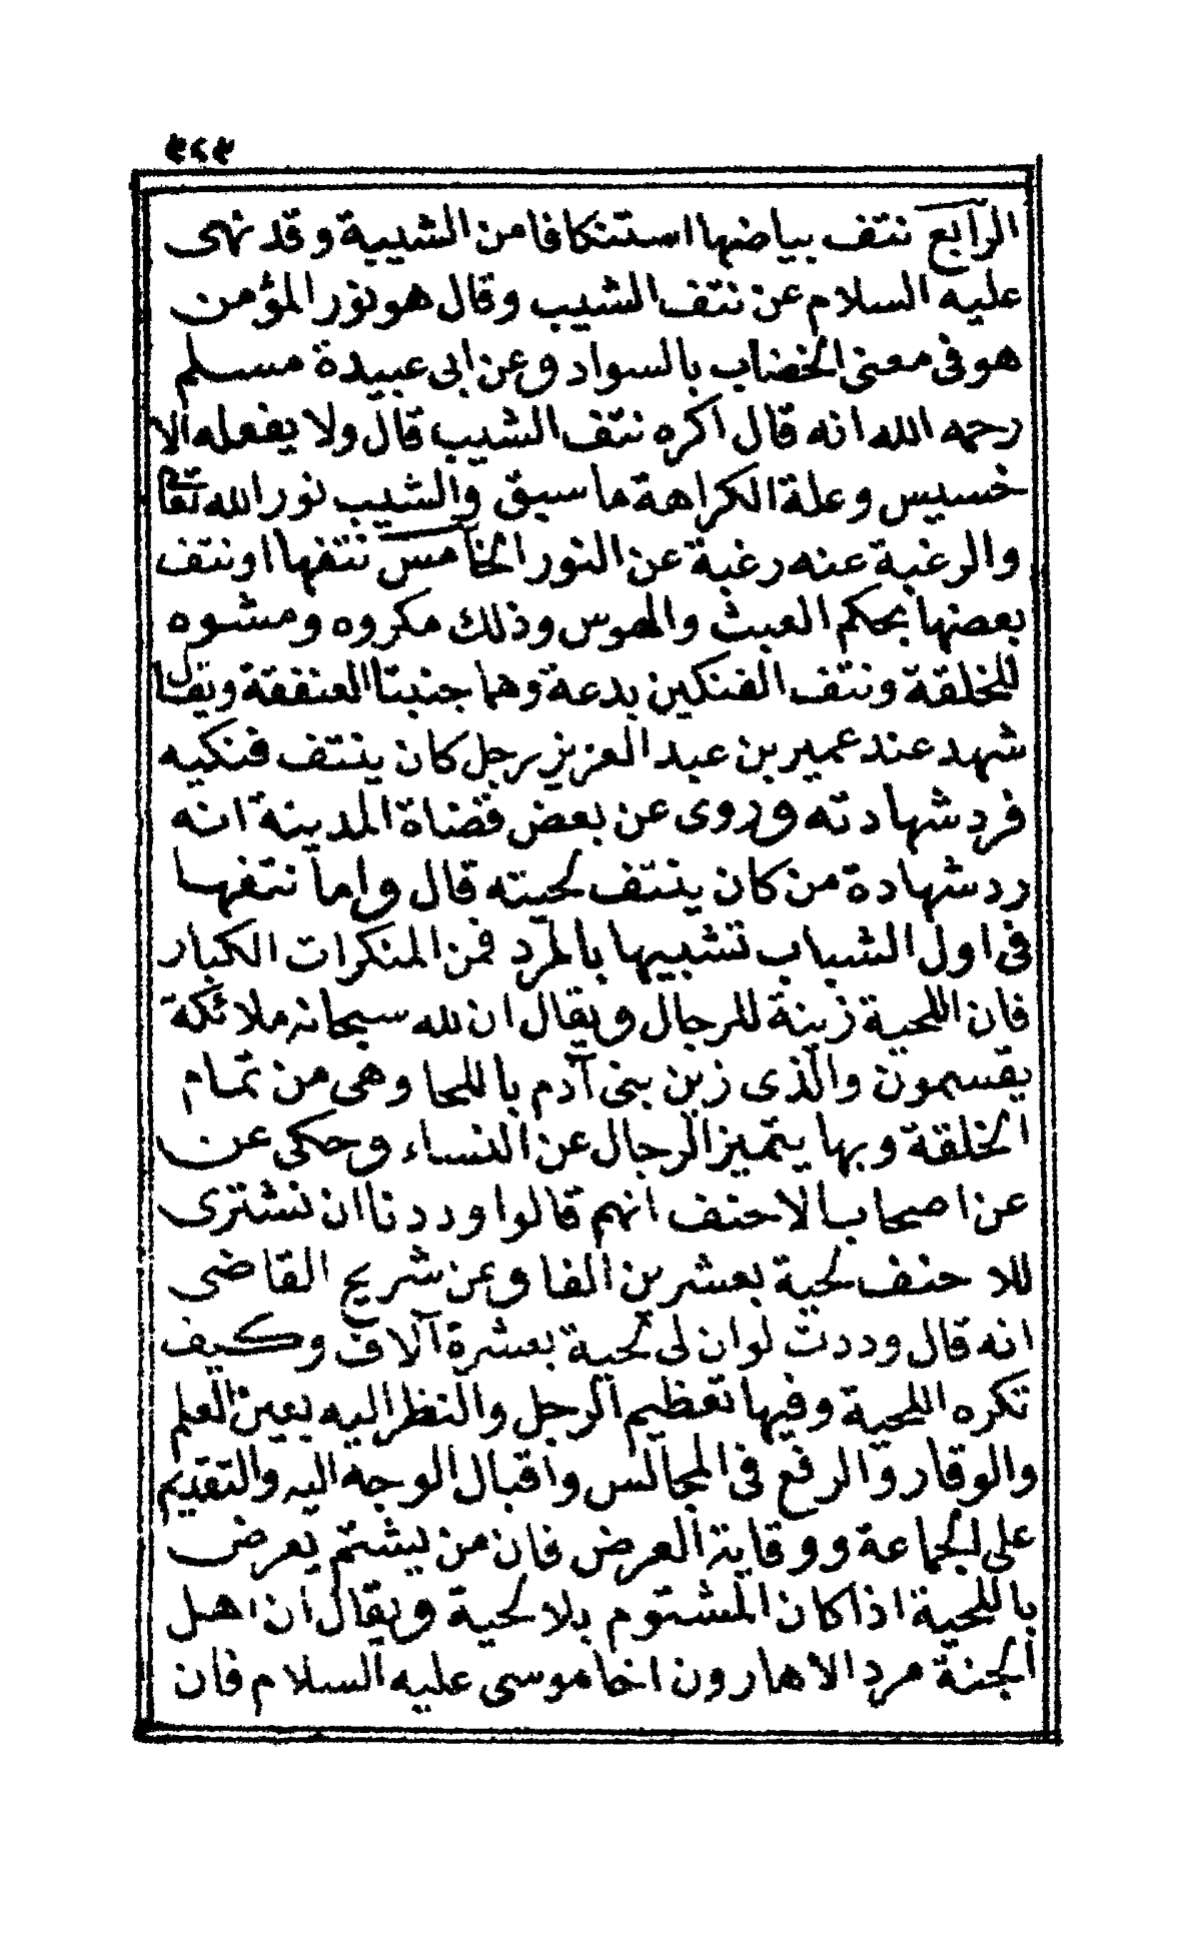 ٣٢٣
الرابع نتف بياضها استنكافا من الشيبة وقد نهى
عليه السلام عن نتف الشيب وقال هو نور المؤمن
هو فى معنى الخضاب بالسواد وعن ابى عبيدة مسلم
رحمه الله انه قال اكره نتف الشيب قال ولا يفعله الا
خسيس وعلة الكراهة ما سبق والشيب نور الله تعا
والرغبة عنه رغبة عن النور الخامس نتفها او نتف
بعضها بحكم العبث والهوس وذلك مكروه ومشوه
للخلقة ونتف الفنكين بدعة وهما جنبتا العنفقة ويقال
شهد عند عمير بن عبد العزيز رجل كان ينتف فنكيه
فرد شهادته وروى عن بعض قضاة المدينة انه
رد شهادة من كان ينتف لحيته قال واما نتفها
فى اول الشباب تشبيها بالمرد فمن المنكرات الكبار
فان اللحية زينة للرجال ويقال ان لله سبحانه ملائكة
يقسمون والذى زين بنى آدم باللحا وهى من تمام
الخلقة وبها يتميز الرجال عن النساء وحكى عن
عن اصحاب الاحنف انهم قالوا وددنا ان نشترى
للاحنف لحية بعشرين الفا وعن شريح القاضى
انه قال وددت لو ان لى لحية بعشرة آلاف وكيف
تكره اللحية وفيها تعظيم الرجل والنظر اليه بعين العلم
والوقار والرفع فى المجالس واقبال الوجه اليه والتقديم
على الجماعة ووقاية العرض فان من يشتم يعرض
باللحية اذا كان المشتوم بلا لحية ويقال ان اهل
الجنة مرد الا هارون اخا موسى عليه السلام فان